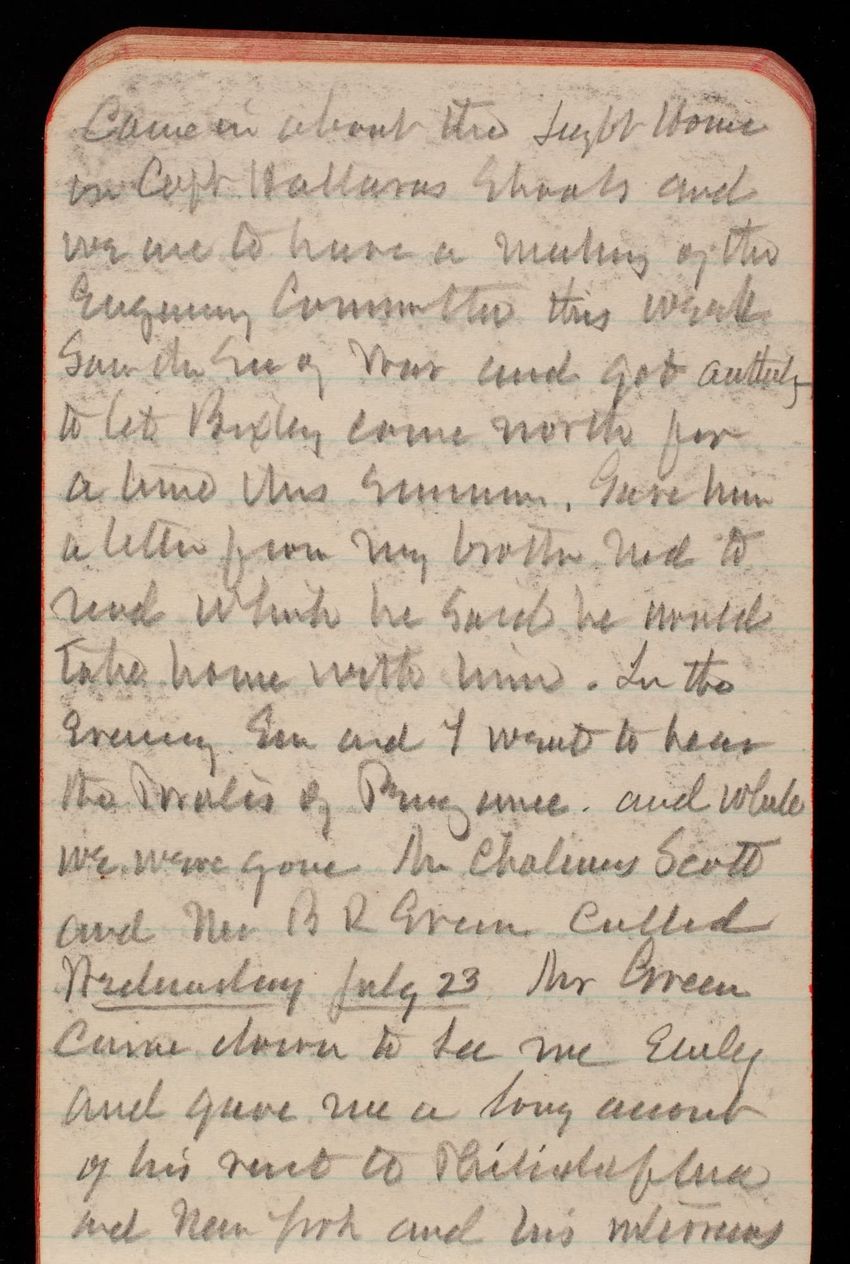 Came in about the Light House
on Cape Hatteras Shoals and
we are to have a meeting of the
Engineering Committee this week
Saw the Sec of War and got authority
to let Bixby come north for
a time this summer. Gave him
a letter from my brother Ned to
read which he said he would
take home with him. In the
Evening Em and I went to hear
the Pirates of Penzance. and while
we were gone Mr Chalmers Scott
and Mr B R Green called
Wednesday July 23 Mr Green
came down to see me Early
and gave me a long account
of his visit to Philidelphia
and New York and his interviews